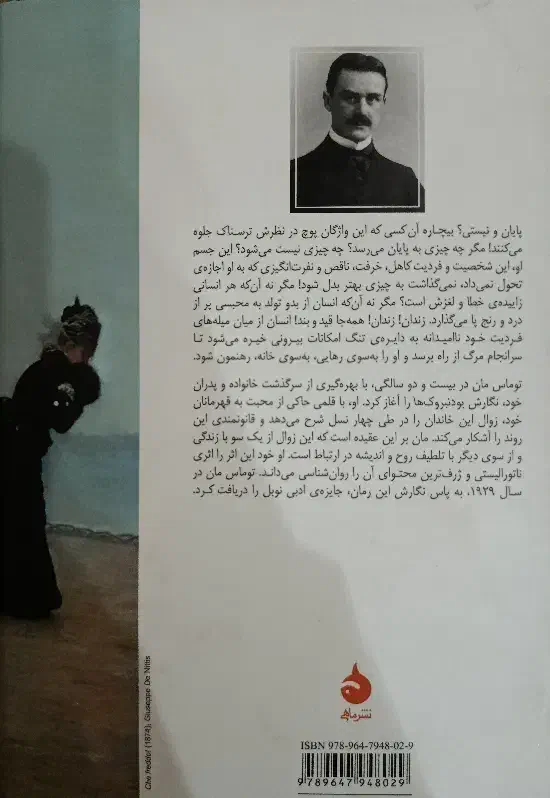 پایان و نیستی؟ بیچاره آن‌کسی که این واژگان پوچ در نظرش ترسناک جلوه
می‌کنند! مگر چه چیزی به پایان می‌رسد؟ چه چیزی نیست می‌شود؟ این جسم
او، این شخصیت و فردیت کاهل، خرفت، ناقص و نفرت‌انگیزی که به او اجازه‌ی
تحول نمی‌داد، نمی‌گذاشت به چیزی بهتر بدل شود! مگر نه آن‌که هر انسانی
زاییده‌ی خطا و لغزش است؟ مگر نه آن‌که انسان از بدو تولد به محبسی پر از
درد و رنج پا می‌گذارد. زندان! زندان! همه‌جا قید و بند! انسان از میان میله‌های
فردیت خود ناامیدانه به دایره‌ی تنگ امکانات بیرونی خیره می‌شود تا
سرانجام مرگ از راه برسد و او را به‌سوی رهایی، به‌سوی خانه، رهنمون شود.
توماس مان در بیست و دو سالگی، با بهره‌گیری از سرگذشت خانواده و پدران
خود، نگارش بودنبروک‌ها را آغاز کرد. او، با قلمی حاکی از محبت به قهرمانان
خود، زوال این خاندان را در طی چهار نسل شرح می‌دهد و قانونمندی این
روند را آشکار می‌کند. مان بر این عقیده است که این زوال از یک سو با زندگی
و از سوی دیگر با تلطیف روح و اندیشه در ارتباط است. او خود این اثر را اثری
ناتورالیستی و ژرف‌ترین محتوای آن را روان‌شناسی می‌داند. توماس مان در
سال ۱۹۲۹، به پاس نگارش این رمان، جایزه‌ی ادبی نوبل را دریافت کرد.
Che freddo! (1874), Giuseppe De Nittis
نشر ماهی
ISBN 978-964-7948-02-9
9789647948029